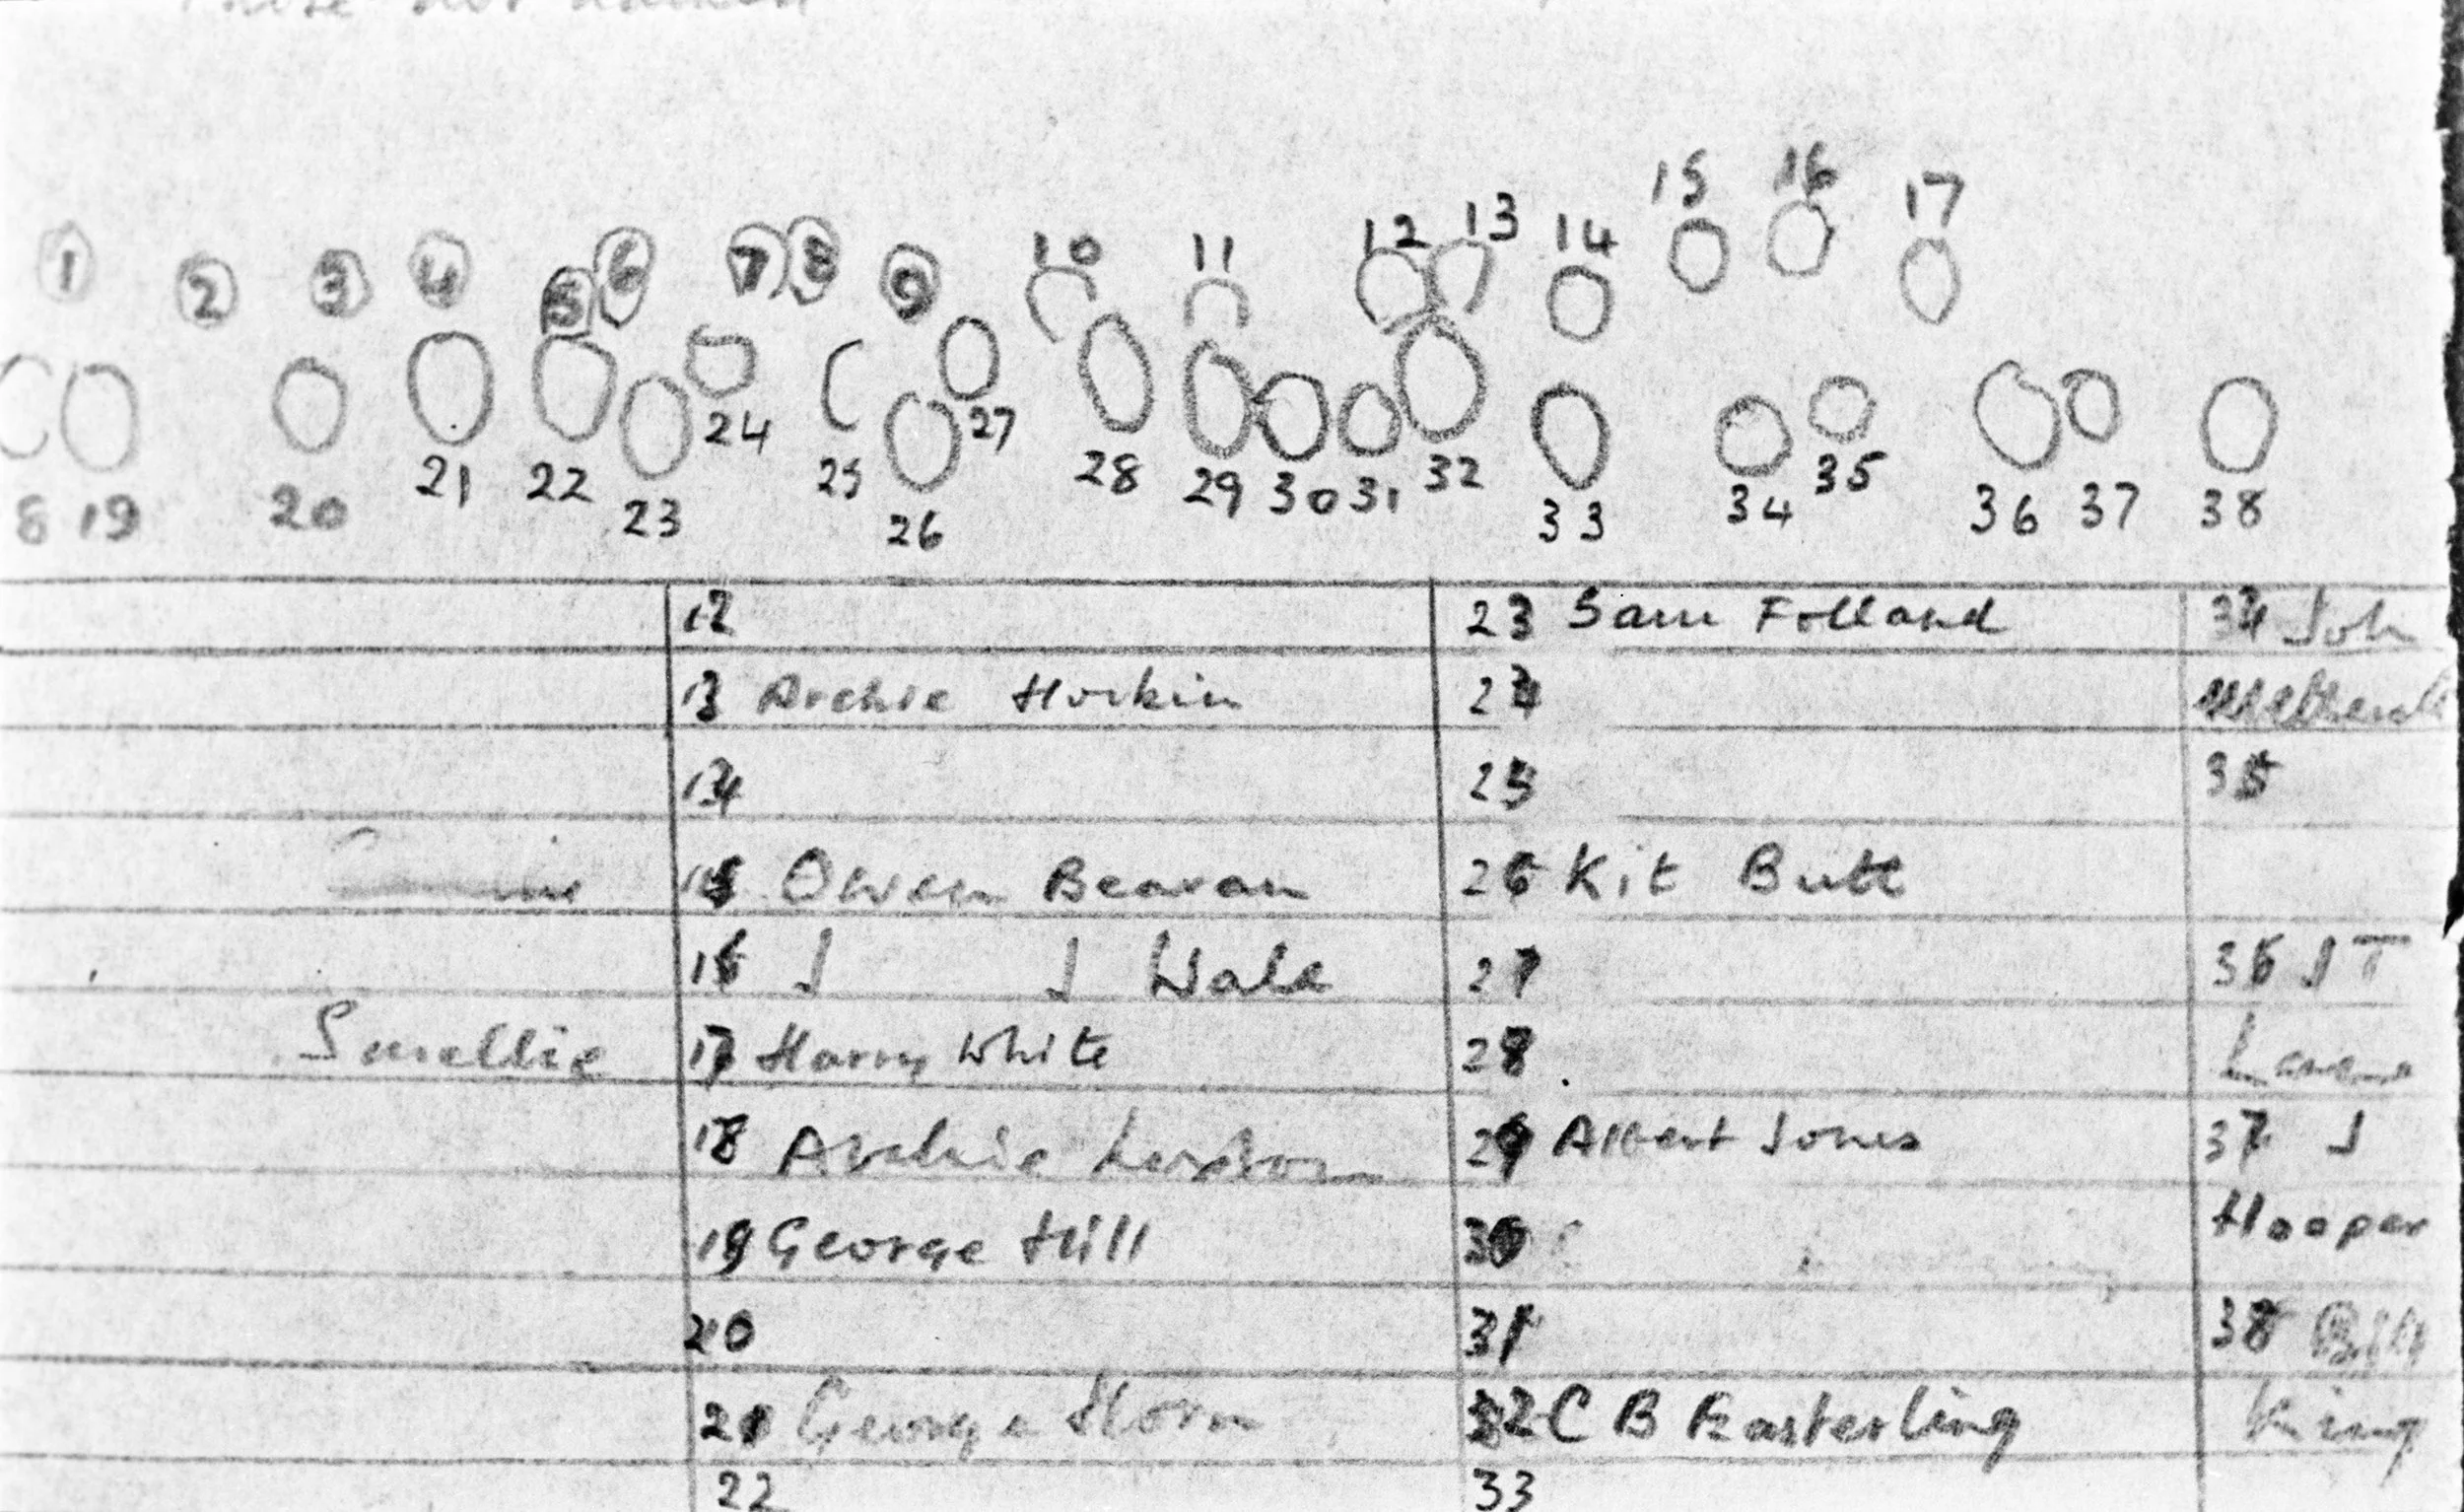 10 11 12 13 14 15 16 17
1 2 3 4 5 6 7 8 9
24 27
21 22 23 25 26 28 29 30 31 32 33 34 35 36 37 38
8 19 20
12
13 Archie Horkin
14
15 Owen Beavan
16 J J Wale
Smellie
17 Harry White
18 Archie
19 George Hill
20
21 George Horn
22
23 Sam Folland
24
25
26 Kit Butt
27
28
29 Albert Jones
30
31
32 C B Easterling
33
34 Joh
35
36 J T
37 J
Hooper
38 Billy
King